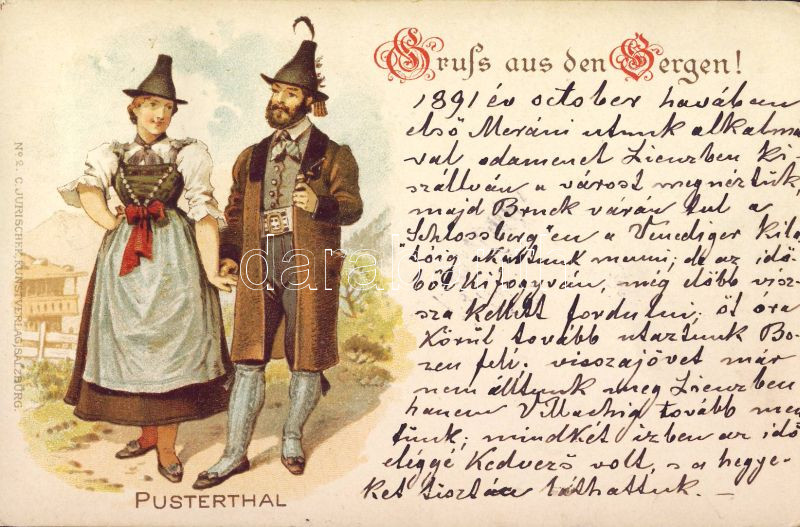 Gruss aus den Bergen!
1891 év october havában
első Meráni utunk alkalmá
val odamenet Lienzben ki
szállván a várost megnéztük,
majd Bruck várán túl a
"Schlossberg"en a Venediger kilá
tóig akartunk menni; de az idő
ből kifogyván, még előbb visz
sza kellett fordulni; öt óra
körül tovább utaztunk Bo
zen felé. visszajövet már
nem álltunk meg Lienzben
hanem Villachig tovább men
tünk; mindkét izben az idő
eléggé kedvező volt, s a hegye
ket tisztán láthattuk. —
PUSTERTHAL
No 2. C. JURISCHEK, KUNSTVERLAG, SALZBURG.